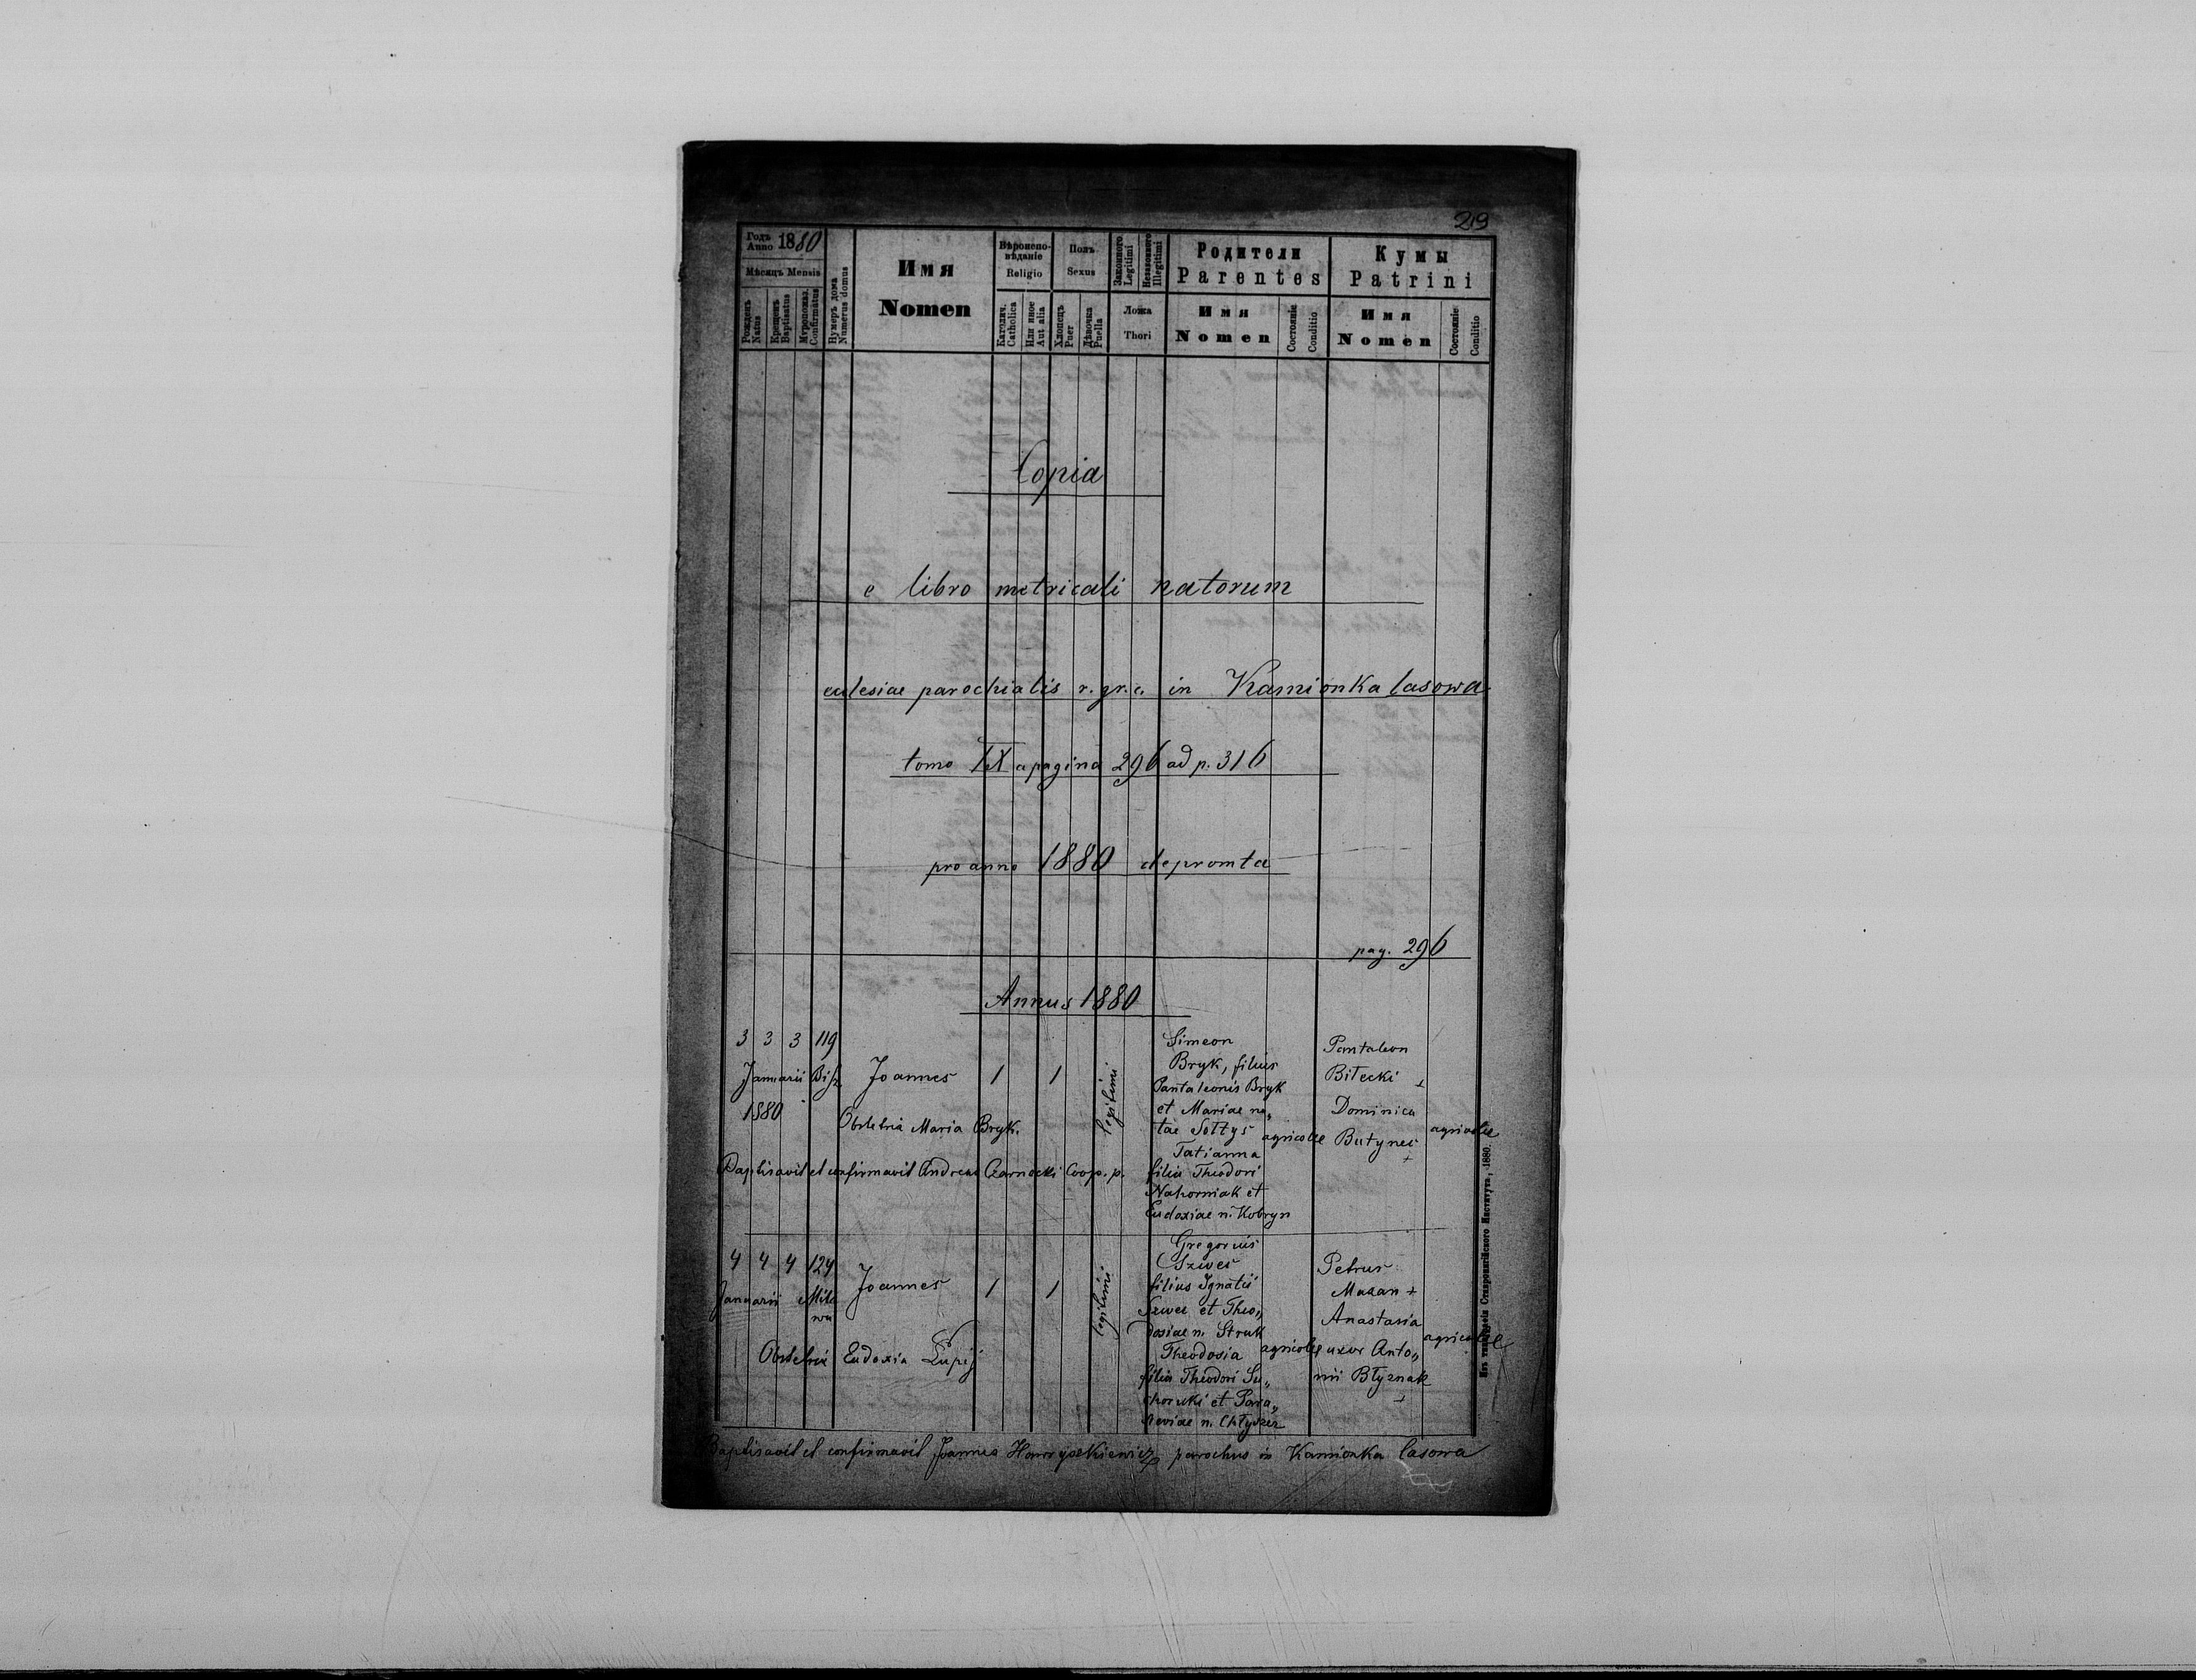 219
Годъ Anno 1880
Мѣсяцъ Mensis
Рожденъ Natus
Крещенъ Baptisatus
Мvропомаз. Confirmatus
Нумеръ дома Numerus domus
Имя
Nomen
Вѣроиспо-
вѣданіе
Religio
Католич. Catholica
Или иное Aut alia
Полъ
Sexus
Хлопецъ Puer
Дѣвочка Puella
Законного Legitimi
Незаконного Illegitimi
Ложа
Thori
Родители
Parentes
Имя
Nomen
Состояніе Conditio
Кумы
Patrini
Имя
Nomen
Состояніе Conditio
Copia
e libro metricali natorum
eclesiae parochialis r. gr. c. in Kamionka lasowa
tomo IX a pagina 296 ad p. 316
pro anno 1880 depromta
pag. 296
Annus 1880
3 3 3 119
Januarii
1880
Joannes 1 1 legitimi
Obstetrix Maria Bryk.
Baptisavit et confirmavit Andreas Czarnecki Coop. p.
Simeon
Bryk, filius
Pantaleonis Bryk
et Mariae na„
tae Sołtys
Tatianna
filia Theodori
Nahorniak et
Eudoxiae n. Kobryn
agricolae
Pantaleon
Biłecki +
Dominica
Butynec
+
agricolae
4 4 4 124
Januarii
Joannes 1 1 legitimi
Obstetrix Eudoxia Łupij
Gregorius
Szwec
filius Ignatii
Szwec et Theo„
dosiae n. Struk
Theodosia
filia Theodori Su„
choruki et Para„
agricolae
Petrus
Mazan +
Anastasia
uxor Anto„
nii Błyznak
+
agricolae
Baptisavit et confirmavit Joannes Hawryszkiewicz parochus in Kamionka lasowa
Изъ типографіи Ставропигійского Института, 1880.